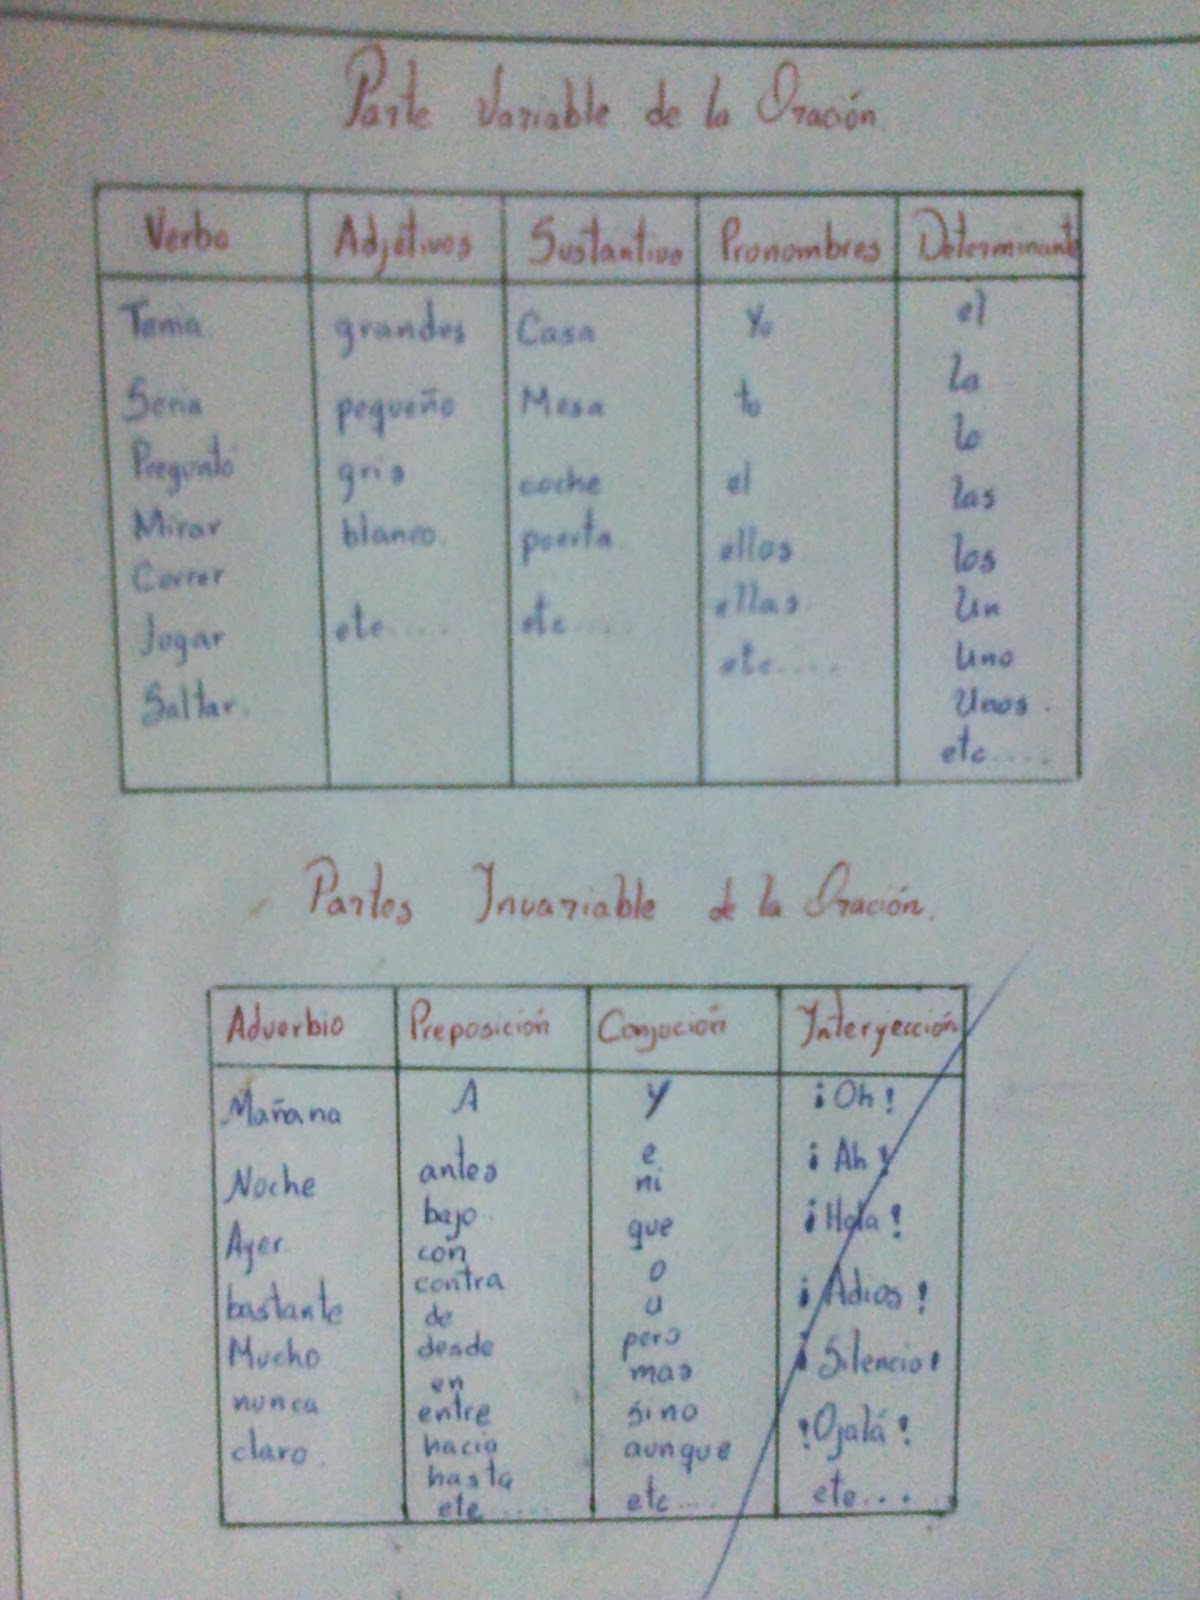 Parte Variable de la Oración
Verbo Adjetivos Sustantivo Pronombres Determinante
Tenia grandes Casa Yo el
la
Seria pequeño Mesa tu
lo
Pregunto gris coche el las
Mirar blanco. puerta. ellos los
Correr
ellas. Un
Jugar etc.... etc....
etc.... Uno
Saltar. Unos.
etc....
Partes Invariable de la Oración.
Adverbio Preposición Conjución Interjección
Mañana A Y ¡Oh!
antes e ¡Ah!
Noche ni
bajo que ¡Hola!
Ayer. con
contra o
bastante de u ¡Adios!
Mucho desde pero ¡Silencio!
en mas
nunca entre sino ¡Ojalá!
claro. hacia aunque
hasta
etc..... etc.... etc...